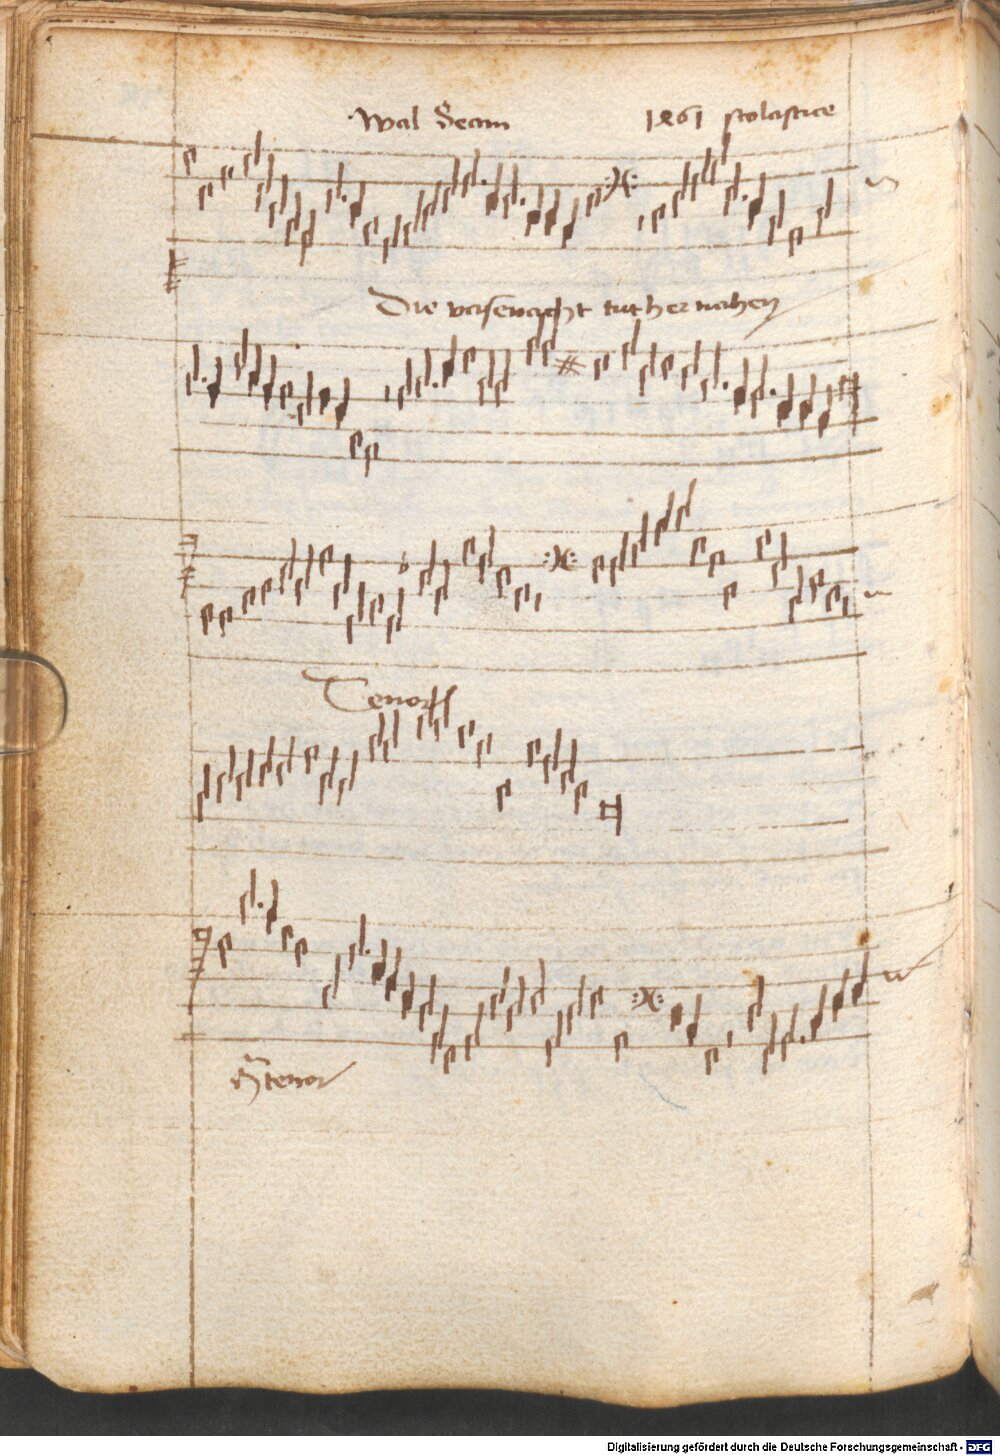 Wal 1461 scolastice
Die vasenacht tut her nahen
Tenor
Digitalisierung gefördert durch die Deutsche Forschungsgemeinschaft - DFG